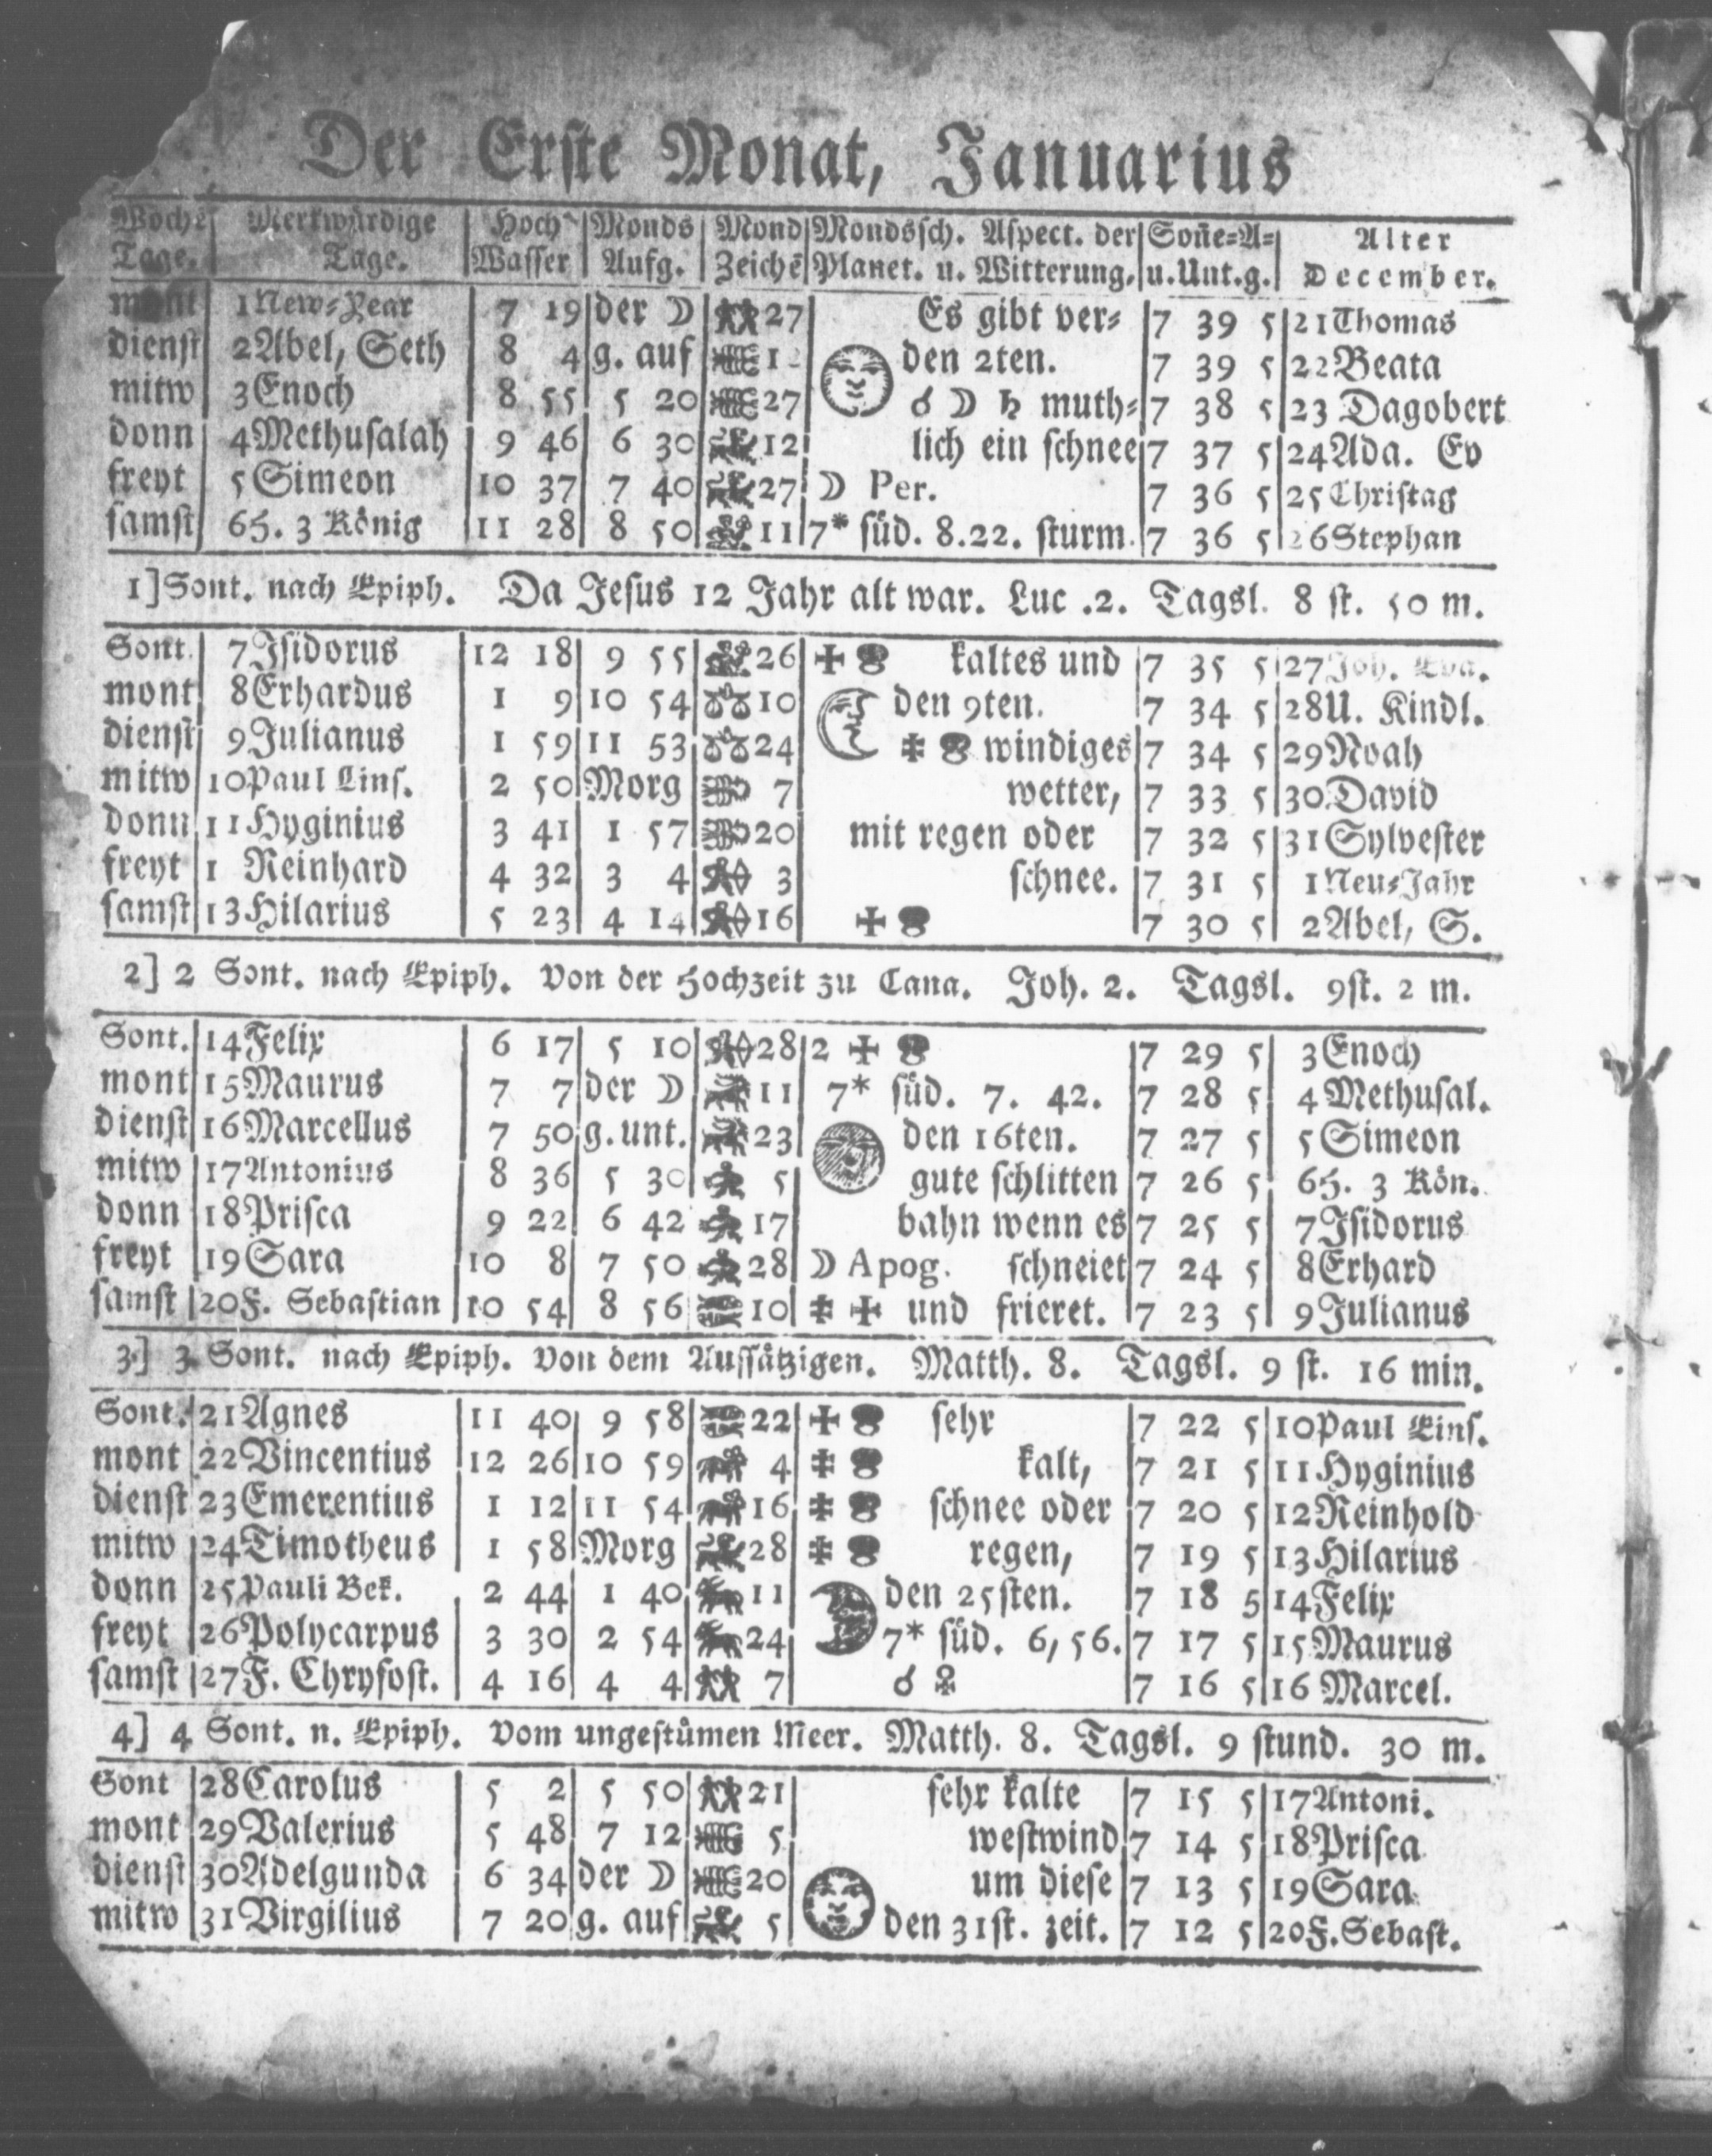 Der Erste Monat, Januarius
Woche Merkwürdige Hoch Monds Mond Mondssch. Aspect. der Soñe=A= Alter
Tage. Tage. Wasser Aufg. Zeichē Planet. u. Witterung, u.Unt.g. December.
mont 1 New=Year 7 19 der ☽ 27 Es gibt ver= 7 39 5 21 Thomas
dienst 2 Abel, Seth 8 4 g. auf den 2ten. 7 39 5 22 Beata
mitw 3 Enoch 8 55 5 20 27 ☌ ☽ ♄ muth= 7 38 5 23 Dagobert
donn 4 Methusalah 9 46 6 30 12 lich ein schnee 7 37 5 24 Ada. Ev
freyt 5 Simeon 10 37 7 40 27 ☽ Per. 7 36 5 25 Christag
samst 6 H. 3 König 11 28 8 50 11 7* süd. 8.22. sturm. 7 36 5 26 Stephan
1] Sont. nach Epiph. Da Jesus 12 Jahr alt war. Luc .2. Tagsl. 8 st. 50 m.
Sont. 7 Isidorus 12 18 9 55 26 kaltes und 7 35 5 27 Joh. Eva.
mont 8 Erhardus 1 9 10 54 10 den 9ten. 7 34 5 28 U. Kindl.
dienst 9 Julianus 1 59 11 53 24 windiges 7 34 5 29 Noah
mitw 10 Paul Eins. 2 50 Morg 7 wetter, 7 33 5 30 David
donn 11 Hyginius 3 41 1 57 20 mit regen oder 7 32 5 31 Sylvester
freyt 1 Reinhard 4 32 3 4 3 schnee. 7 31 5 1 Neu=Jahr
samst 13 Hilarius 5 23 4 14 16 7 30 5 2 Abel, S.
2] 2 Sont. nach Epiph. Von der Hochzeit zu Cana. Joh. 2. Tagsl. 9st. 2 m.
Sont. 14 Felix 6 17 5 10 28 2 7 29 5 3 Enoch
mont 15 Maurus 7 7 der ☽ 11 7* süd. 7. 42. 7 28 5 4 Methusal.
dienst 16 Marcellus 7 50 g.unt. 23 den 16ten. 7 27 5 5 Simeon
mitw 17 Antonius 8 36 5 30 5 gute schlitten 7 26 5 6 H. 3 Kön.
donn 18 Prisca 9 22 6 42 17 bahn wenn es 7 25 5 7 Isidorus
freyt 19 Sara 10 8 7 50 28 ☽ Apog. schneiet 7 24 5 8 Erhard
samst 20 F. Sebastian 10 54 8 56 10 und frieret. 7 23 5 9 Julianus
3] 3 Sont. nach Epiph. Von dem Aussätzigen. Matth. 8. Tagsl. 9 st. 16 min.
Sont. 21 Agnes 11 40 9 58 22 sehr 7 22 5 10 Paul Eins.
mont 22 Vincentius 12 26 10 59 4 kalt, 7 21 5 11 Hyginius
dienst 23 Emerentius 1 12 11 54 16 schnee oder 7 20 5 12 Reinhold
mitw 24 Timotheus 1 58 Morg 28 regen, 7 19 5 13 Hilarius
donn 25 Pauli Bek. 2 44 1 40 11 den 25sten. 7 18 5 14 Felix
freyt 26 Polycarpus 3 30 2 54 24 7* süd. 6, 56. 7 17 5 15 Maurus
samst 27 F. Chrysost. 4 16 4 4 7 ☌ 7 16 5 16 Marcel.
4] 4 Sont. n. Epiph. Vom ungestümen Meer. Matth. 8. Tagsl. 9 stund. 30 m.
Sont 28 Carolus 5 2 5 50 21 sehr kalte 7 15 5 17 Antoni.
mont 29 Valerius 5 48 7 12 5 westwind 7 14 5 18 Prisca
dienst 30 Adelgunda 6 34 der ☽ 20 um diese 7 13 5 19 Sara
mitw 31 Virgilius 7 20 g. auf 5 den 31st. zeit. 7 12 5 20 F. Sebast.